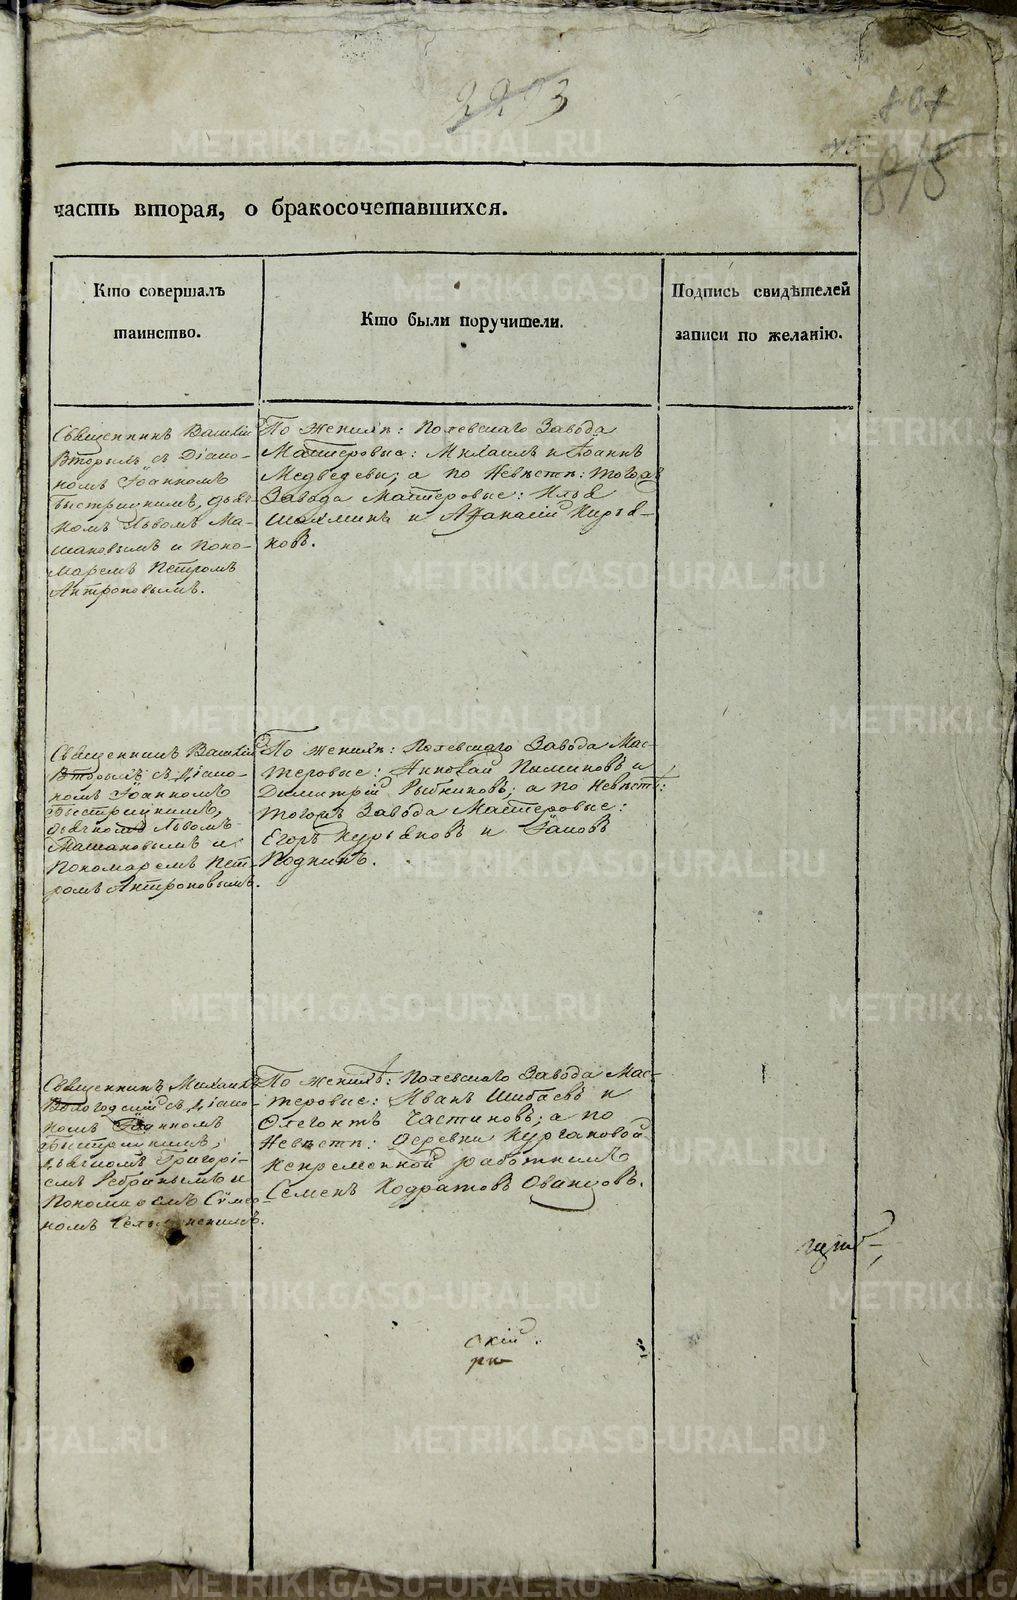 2273
801
815
часть вторая, о бракосочетавшихся.
Кто совершалъ
таинство.
Кто были поручители.
Подпись свидѣтелей
записи по желанію.
Священникъ Василій
Вторымъ съ Діако-
номъ Іоанномъ
Быстрицкимъ, дьяч-
комъ Львомъ Ма-
шановымъ и Поно-
маремъ Петромъ
Антроповымъ.
По женихѣ: Полевскаго Завода
Мастеровые: Михаилъ и Іоаннъ
Медведевы; а по Невѣстѣ: тогожъ
Завода Мастеровые: Илья
Шахминъ и Афанасій Кирья-
ковъ.
Священникъ Василій
Вторымъ съ Діако-
номъ Іоанномъ
Быстрицкимъ,
дьячкомъ Львомъ
Машановымъ и
Пономаремъ Пет-
ромъ Антроповымъ.
По женихѣ: Полевскаго Завода Мас-
теровые: Николай Пыминовъ и
Димитрій Рыбниковъ; а по Невѣстѣ:
тогожъ Завода Мастеровые:
Егоръ Курьяновъ и Іаковъ
Поднинъ.
Священникъ Михаилъ
Вологодскій съ Діако-
номъ Іоанномъ
Быстрицкимъ,
дьячкомъ Григорі-
емъ Ребринымъ и
Пономаремъ Сѵмео-
номъ
По женихѣ: Полевскаго Завода Мас-
теровые: Иванъ Шибаевъ и
Флегонтъ Частиковъ; а по
Невѣстѣ: Деревни Кургановой
непременной работникъ
Семенъ Кодратовъ Ованцовъ.
скій
METRIKI.GASO-URAL.RU